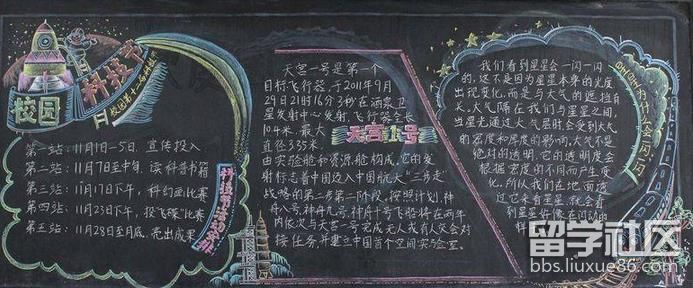 校园
科技节
校园第十二届科技节
第一站：11月1日-5日，宣传投入
第二站：11月7日至中旬，读科普书籍
第三站：11月17日下午，科幻画比赛
第四站：11月23日下午，投飞碟比赛
第五站：11月28日至月底，亮出成果
天宫一号是第一个
目标飞行器，于2011年9月
29日21时16分3秒在酒泉卫
星发射中心发射，飞行器全长
10.4米，最大
直径3.35米，
天宫1号
由实验舱和资源舱构成，它的发
射标志着中国迈入中国航天“三步走”
战略的第二步第二阶段。按照计划，神
舟八号、神舟九号、神舟十号飞船将在两年
内依次与天宫一号完成无人或有人交会对
接任务，并建立中国首个空间实验室。
星星为什么会一闪一闪
我们看到星星会一闪一闪
的，这不是因为星星本身的光度
出现变化，而是与大气的遮挡有
关。大气隔在我们与星星之间，
当星光通过大气层时会受到大气
的密度和厚度的影响，大气不是
绝对的透明，它的透明度会
根据密度的不同而产生变
化。所以我们在地面透
过它来看星星，就会看
到星星好像在闪动的
留学社区
bbs.liuxue86.com